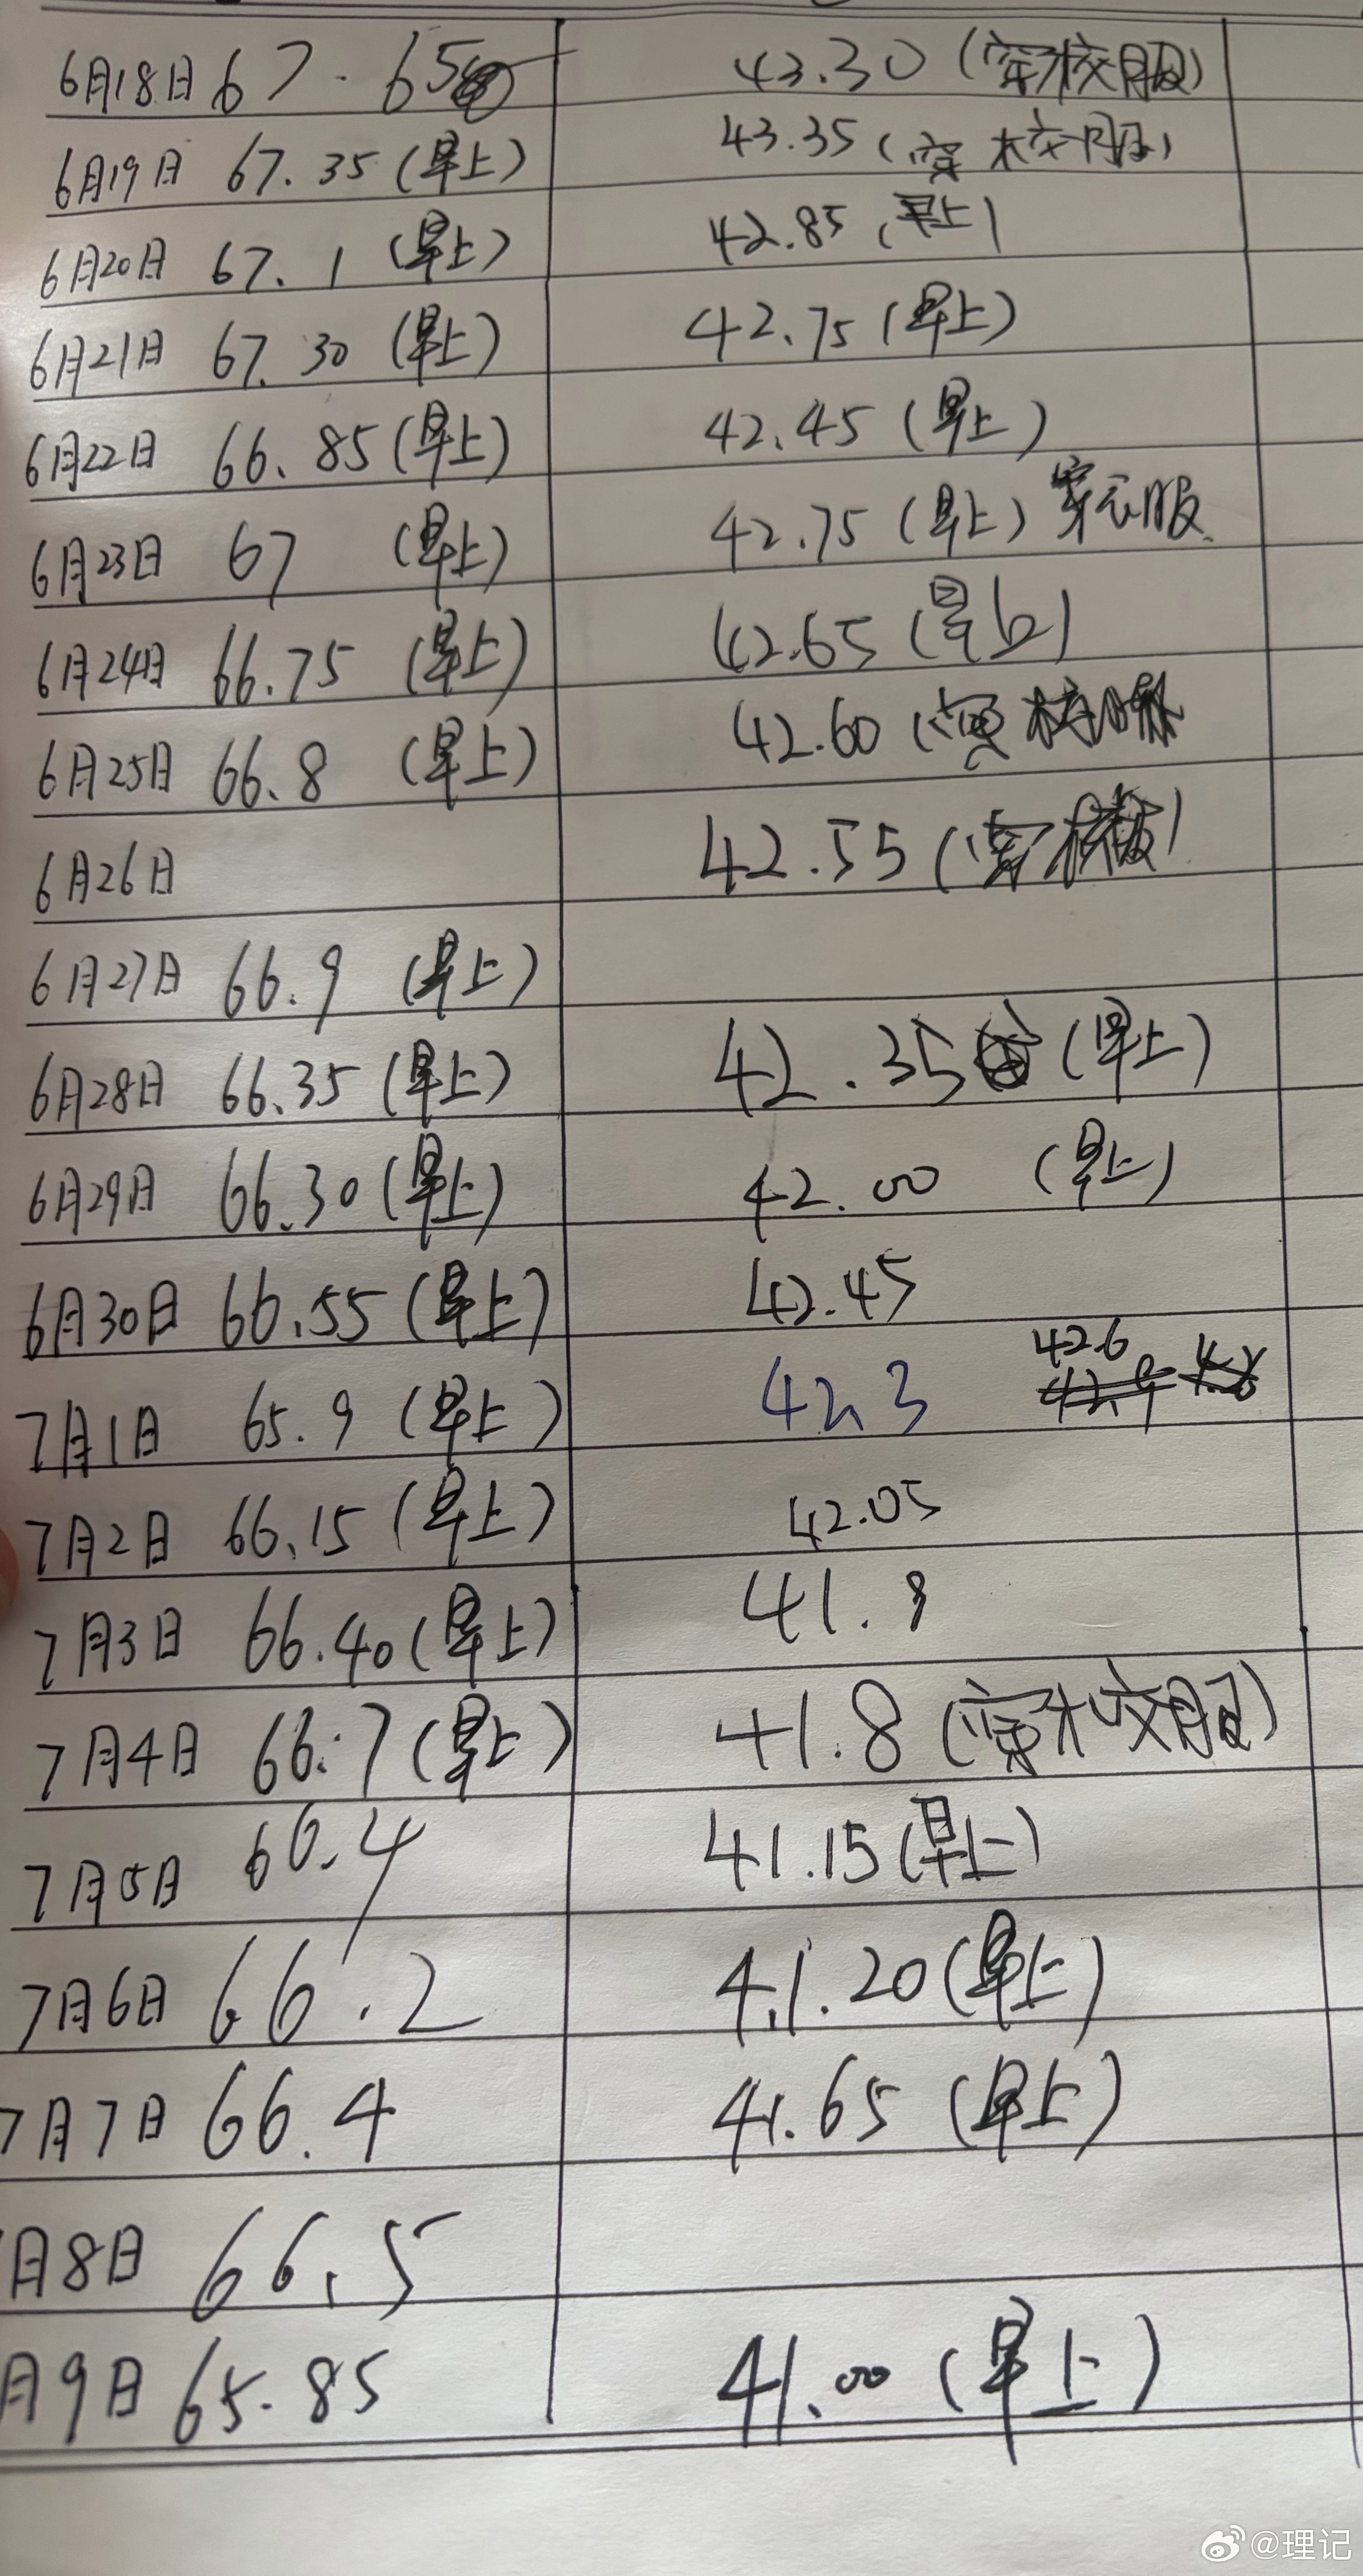 6月18日 67.65 43.30 (穿校服)
6月19日 67.35 (早上) 43.35 (穿校服)
6月20日 67.1 (早上) 42.85 (早上)
6月21日 67.30 (早上) 42.75 (早上)
6月22日 66.85 (早上) 42.45 (早上)
6月23日 67 (早上) 42.75 (早上) 穿衣服
6月24日 66.75 (早上) 42.65 (早上)
6月25日 66.8 (早上) 42.60 (穿校服
6月26日 42.55 (穿校服)
6月27日 66.9 (早上)
6月28日 66.35 (早上) 42.35 (早上)
6月29日 66.30 (早上) 42.00 (早上)
6月30日 66.55 (早上) 42.45
7月1日 65.9 (早上) 42.3 42.6
7月2日 66.15 (早上) 42.05
7月3日 66.40 (早上) 41.9
7月4日 66.7 (早上) 41.8 (穿校服)
7月5日 66.4 41.15 (早上)
7月6日 66.2 41.20 (早上)
7月7日 66.4 41.65 (早上)
月8日 66.5
月9日 65.85 41.00 (早上)
@理记